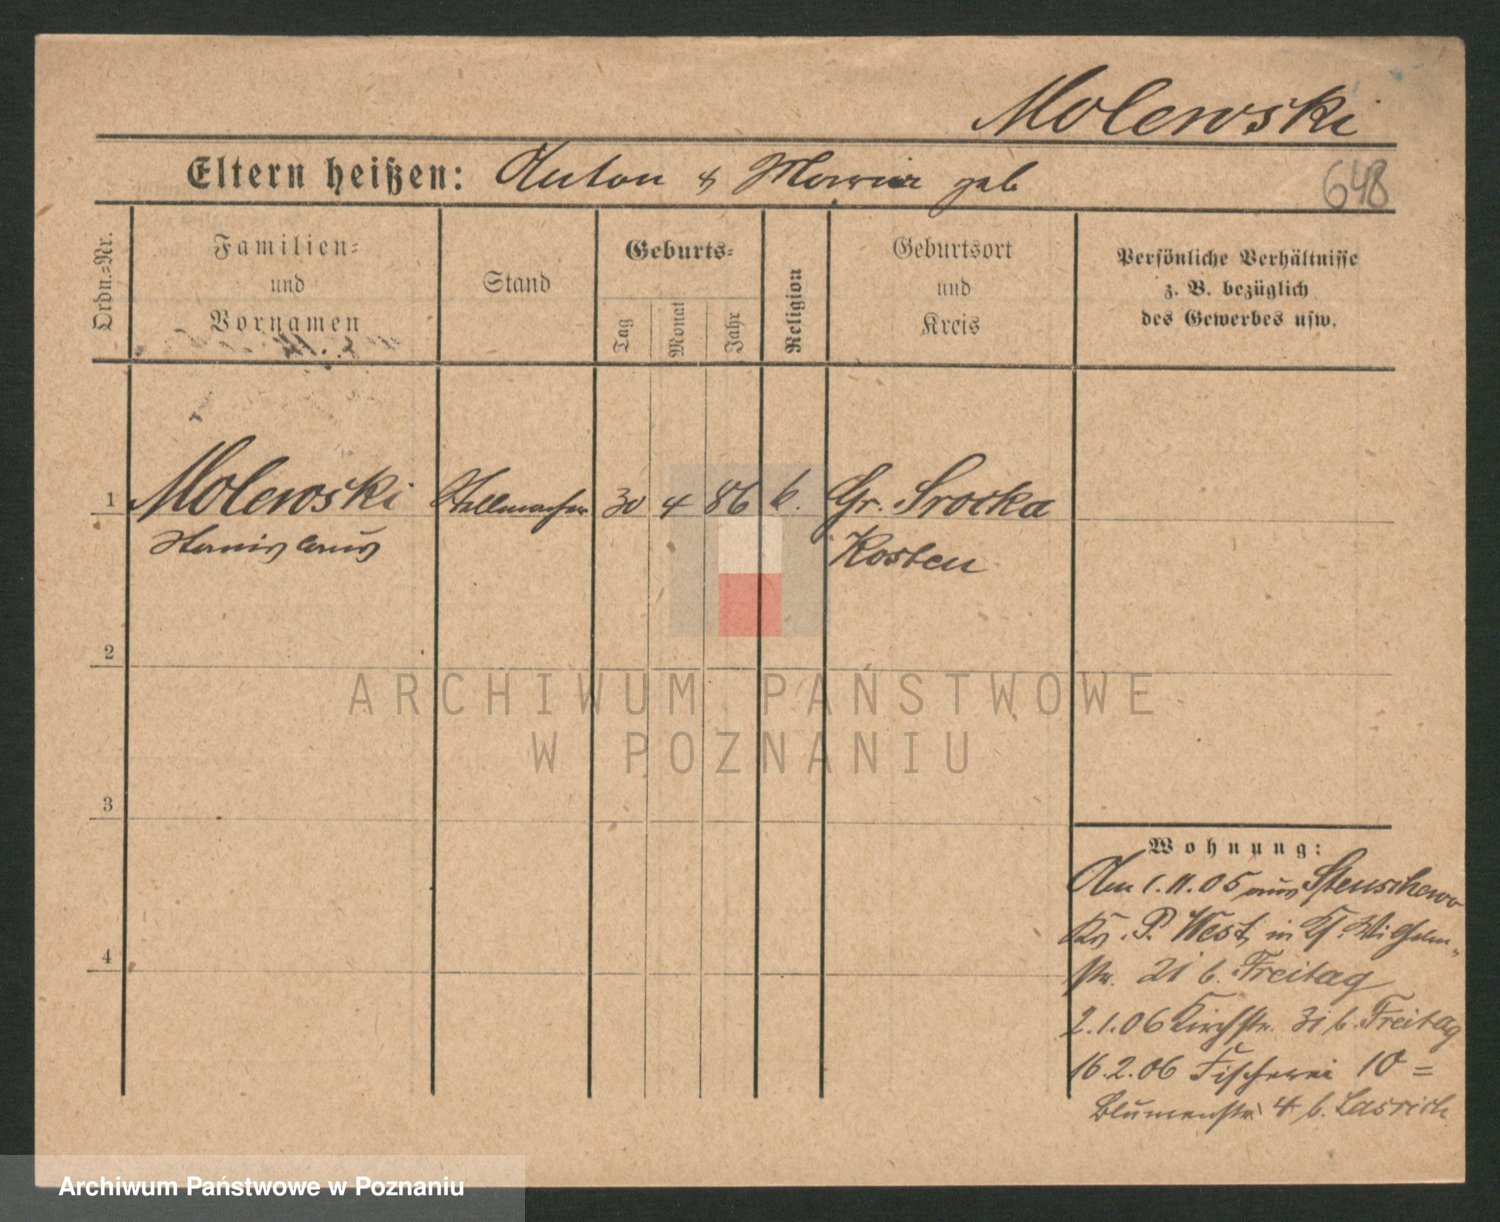 Molewski
Eltern heißen: Anton & Maria geb
648
Ordn.-Nr.
Familien-
und
Vornamen
Stand
Geburts-
Tag
Monat
Jahr
Religion
Geburtsort
und
Kreis
Persönliche Verhältnisse
z. B. bezüglich
des Gewerbes usw.
1 Molewski Stellmacher 30 4 86 k. Gr. Srocka
Stanislaus Kosten
2
ARCHIWUM PAŃSTWOWE
W POZNANIU
3
4
Wohnung:
Am 1.11.05 aus Stenschewo
Krs. P. West in Wilhelm-
str. 21 b. Freitag
2.1.06 Kirchstr. 31 b. Freitag
16.2.06 Fischerei 10 =
Blumenstr. 4 b.
Archiwum Państwowe w Poznaniu